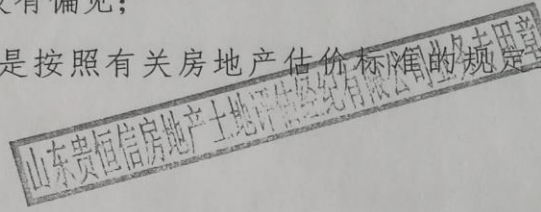 没有偏见；
是按照有关房地产估价标准的规定
山东贵恒信房地产土地评估经纪有限公司业务专用章